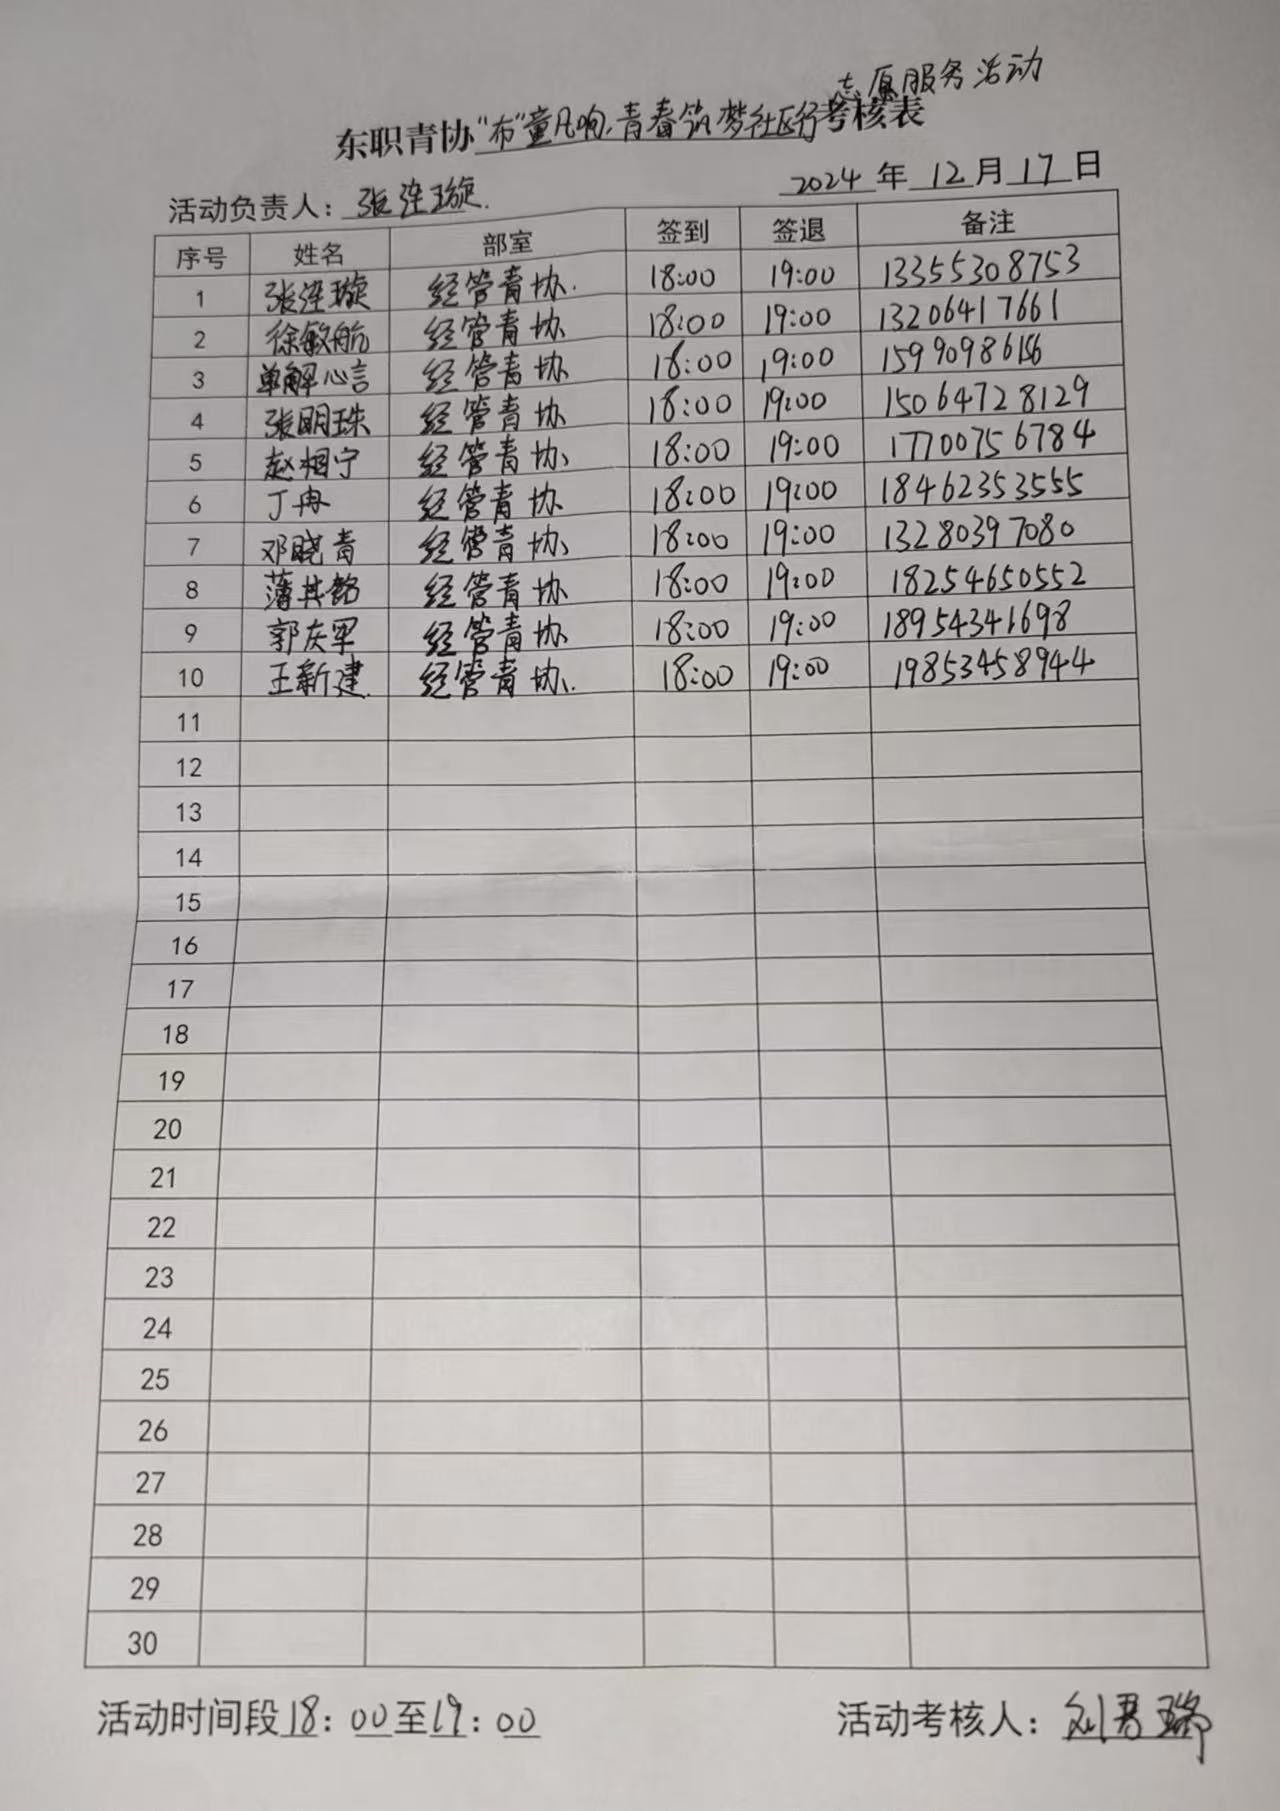 志愿服务活动
东职青协"布"童凡响,青春筑梦社区行考核表
活动负责人: 张连璇. 2024 年 12 月 17 日
序号 姓名 部室 签到 签退 备注
1 张连璇 经管青协. 18:00 19:00 13355308753
2 徐敏航 经管青协 18:00 19:00 13206417661
3 单解心言 经管青协 18:00 19:00
4 张明珠 经管青协 18:00 19:00 15064728129
5 赵相宁 经管青协 18:00 19:00 17700756784
6 丁冉 经管青协 18:00 19:00 18462353555
7 邓晓青 经管青协 18:00 19:00 13280397080
8 薄其铭 经管青协 18:00 19:00 18254650552
9 郭庆军 经管青协 18:00 19:00 18954341698
10 王新建. 经管青协. 18:00 19:00 19853458944
11
12
13
14
15
16
17
18
19
20
21
22
23
24
25
26
27
28
29
30
活动时间段18: 00至19: 00 活动考核人: 刘君瑞